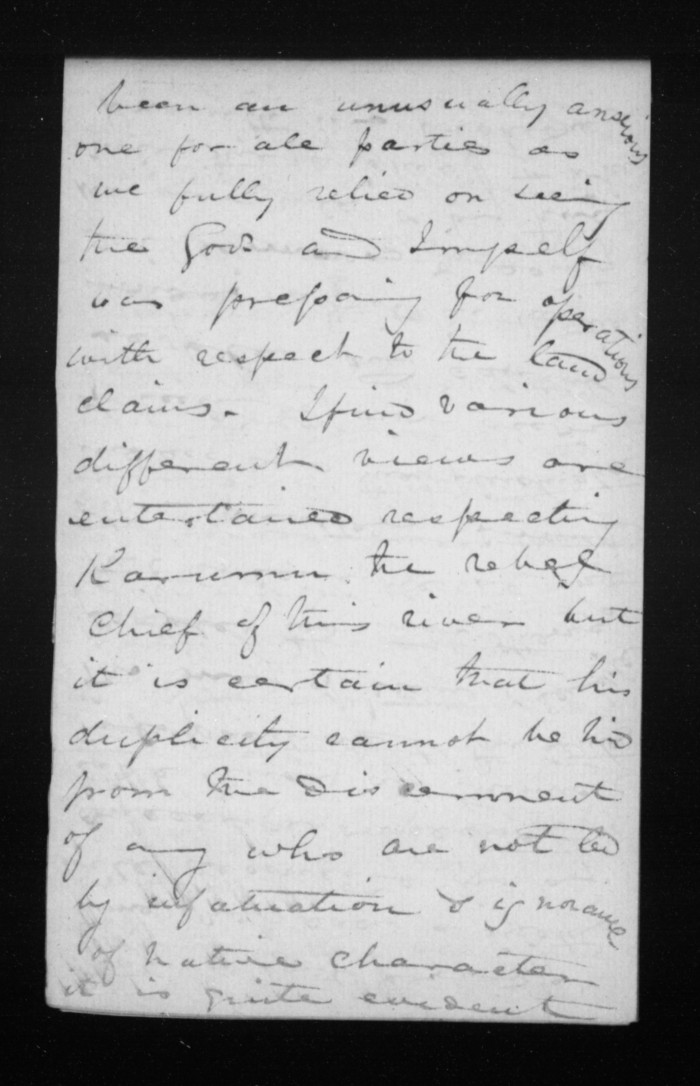 been an unusually anxious
one for all parties as
we fully relied on seeing
the Govr and I myself
was preparing for operations
with respect to the land
claims. I find various
different views are
entertained respecting
Karamu the rebel
chief of this river but
it is certain that his
duplicity cannot be hid
from the discernment
of any who are not led
by infatuation & ignorance
of native character
it is quite evident